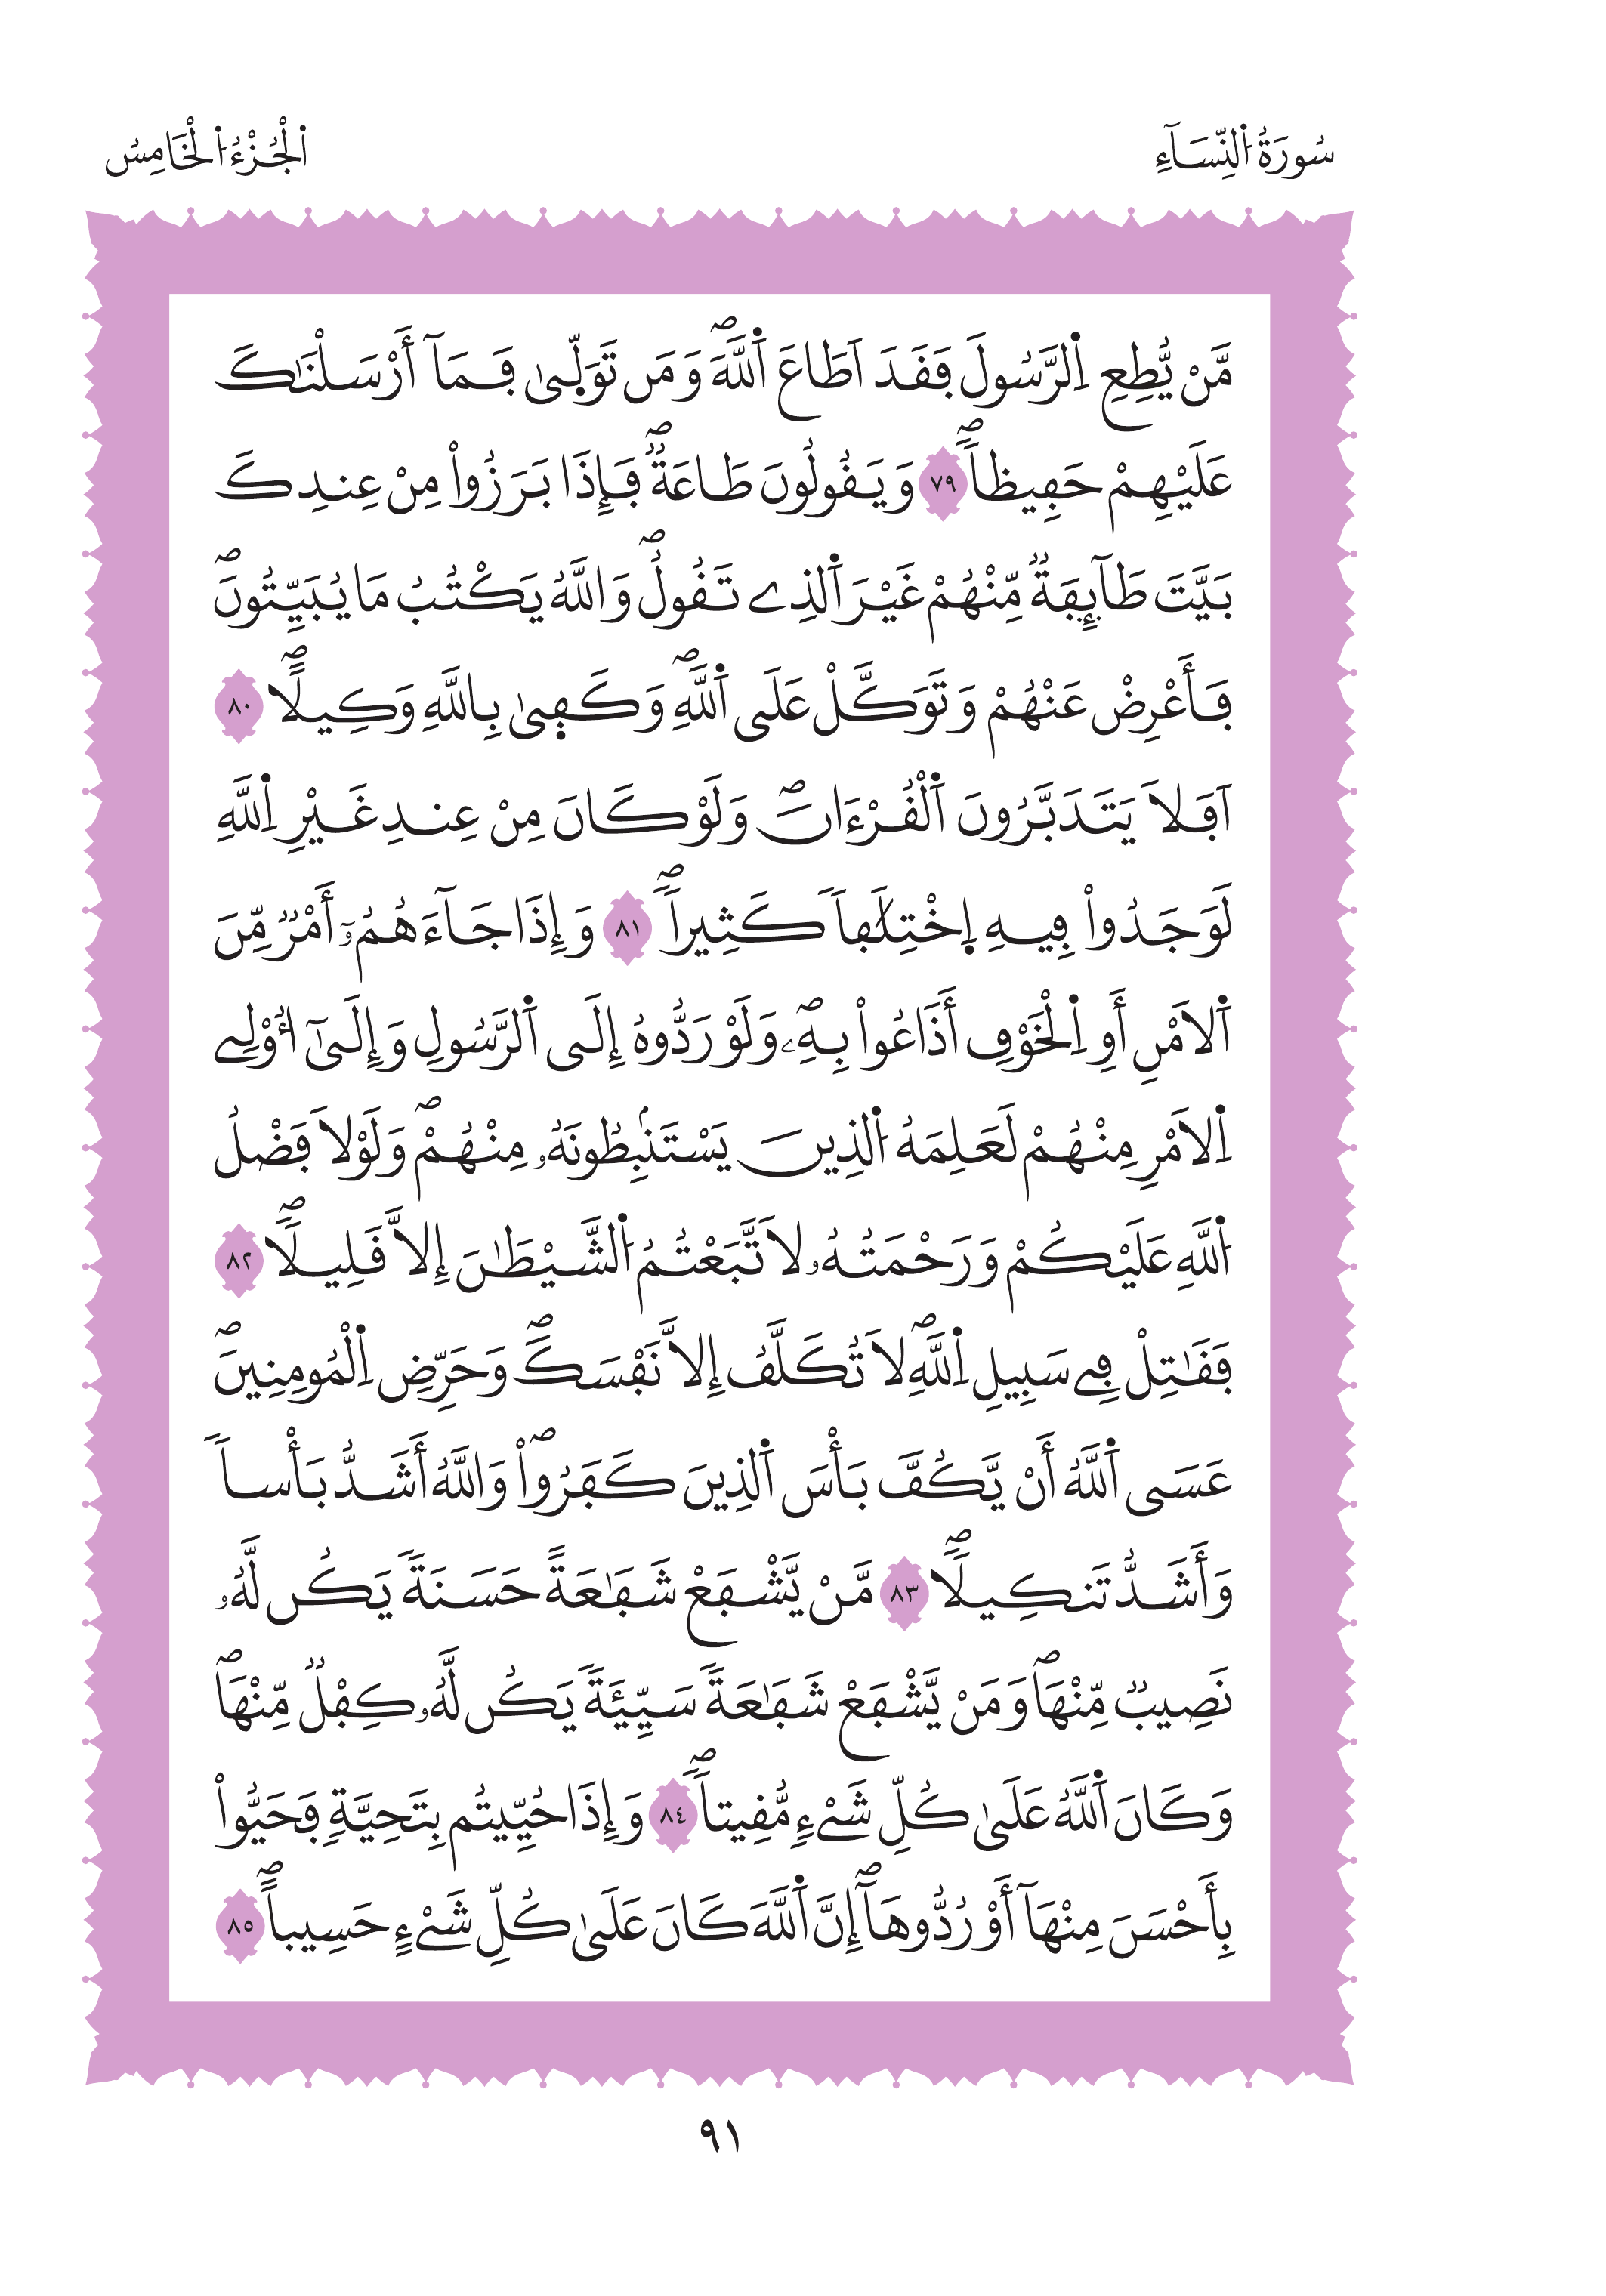 سُورَةُ اُ۬لنِّسَآءِ
اَ۬لْجُزْءُ اُ۬لْخَامِسُ
مَّنْ يُّطِعِ اِ۬لرَّسُولَ فَقَدَ اَطَاعَ اَ۬للَّهَۖ وَمَن تَوَلّ۪ىٰ فَمَآ أَرْسَلْنَٰكَ
عَلَيْهِمْ حَفِيظاٗۖ ٧٩ وَيَقُولُونَ طَاعَةٞۖ فَإِذَا بَرَزُواْ مِنْ عِندِكَ
بَيَّتَ طَآئِفَةٞ مِّنْهُمْ غَيْرَ اَ۬لذِے تَقُولُۖ وَاللَّهُ يَكْتُبُ مَا يُبَيِّتُونَۖ
فَأَعْرِضْ عَنْهُمْ وَتَوَكَّلْ عَلَى اَ۬للَّهِۖ وَكَف۪ىٰ بِاللَّهِ وَكِيلاًۖ ٨٠
اَفَلاَ يَتَدَبَّرُونَ اَ۬لْقُرْءَانَۖ وَلَوْ كَانَ مِنْ عِندِ غَيْرِ اِ۬للَّهِ
لَوَجَدُواْ فِيهِ اِ۪خْتِلَٰفاٗ كَثِيراٗۖ ٨١ وَإِذَا جَآءَهُمُۥٓ أَمْرٞ مِّنَ
اَ۬لَامْنِ أَوِ اِ۬لْخَوْفِ أَذَاعُواْ بِهِۦۖ وَلَوْ رَدُّوهُ إِلَى اَ۬لرَّسُولِ وَإِلَىٰٓ أُوْلِے
اِ۬لَامْرِ مِنْهُمْ لَعَلِمَهُ اُ۬لذِينَ يَسْتَنۢبِطُونَهُۥ مِنْهُمْۖ وَلَوْلَا فَضْلُ
اُ۬للَّهِ عَلَيْكُمْ وَرَحْمَتُهُۥ لَاتَّبَعْتُمُ اُ۬لشَّيْطَٰنَ إِلاَّ قَلِيلاٗۖ ٨٢
فَقَٰتِلْ فِے سَبِيلِ اِ۬للَّهِۖ لَا تُكَلَّفُ إِلاَّ نَفْسَكَۖ وَحَرِّضِ اِ۬لْمُومِنِينَۖ
عَسَى اَ۬للَّهُ أَنْ يَّكُفَّ بَأْسَ اَ۬لذِينَ كَفَرُواْۖ وَاللَّهُ أَشَدُّ بَأْساٗ
وَأَشَدُّ تَنكِيلاٗۖ ٨٣ مَّنْ يَّشْفَعْ شَفَٰعَةً حَسَنَةٗ يَكُن لَّهُۥ
نَصِيبٞ مِّنْهَاۖ وَمَنْ يَّشْفَعْ شَفَٰعَةٗ سَيِّئَةٗ يَكُن لَّهُۥ كِفْلٞ مِّنْهَاۖ
وَكَانَ اَ۬للَّهُ عَلَىٰ كُلِّ شَےْءٖ مُّقِيتاٗۖ ٨٤ وَإِذَا حُيِّيتُم بِتَحِيَّةٖ فَحَيُّواْ
بِأَحْسَنَ مِنْهَآ أَوْ رُدُّوهَآۖ إِنَّ اَ۬للَّهَ كَانَ عَلَىٰ كُلِّ شَےْءٍ حَسِيباًۖ ٨٥
٩١